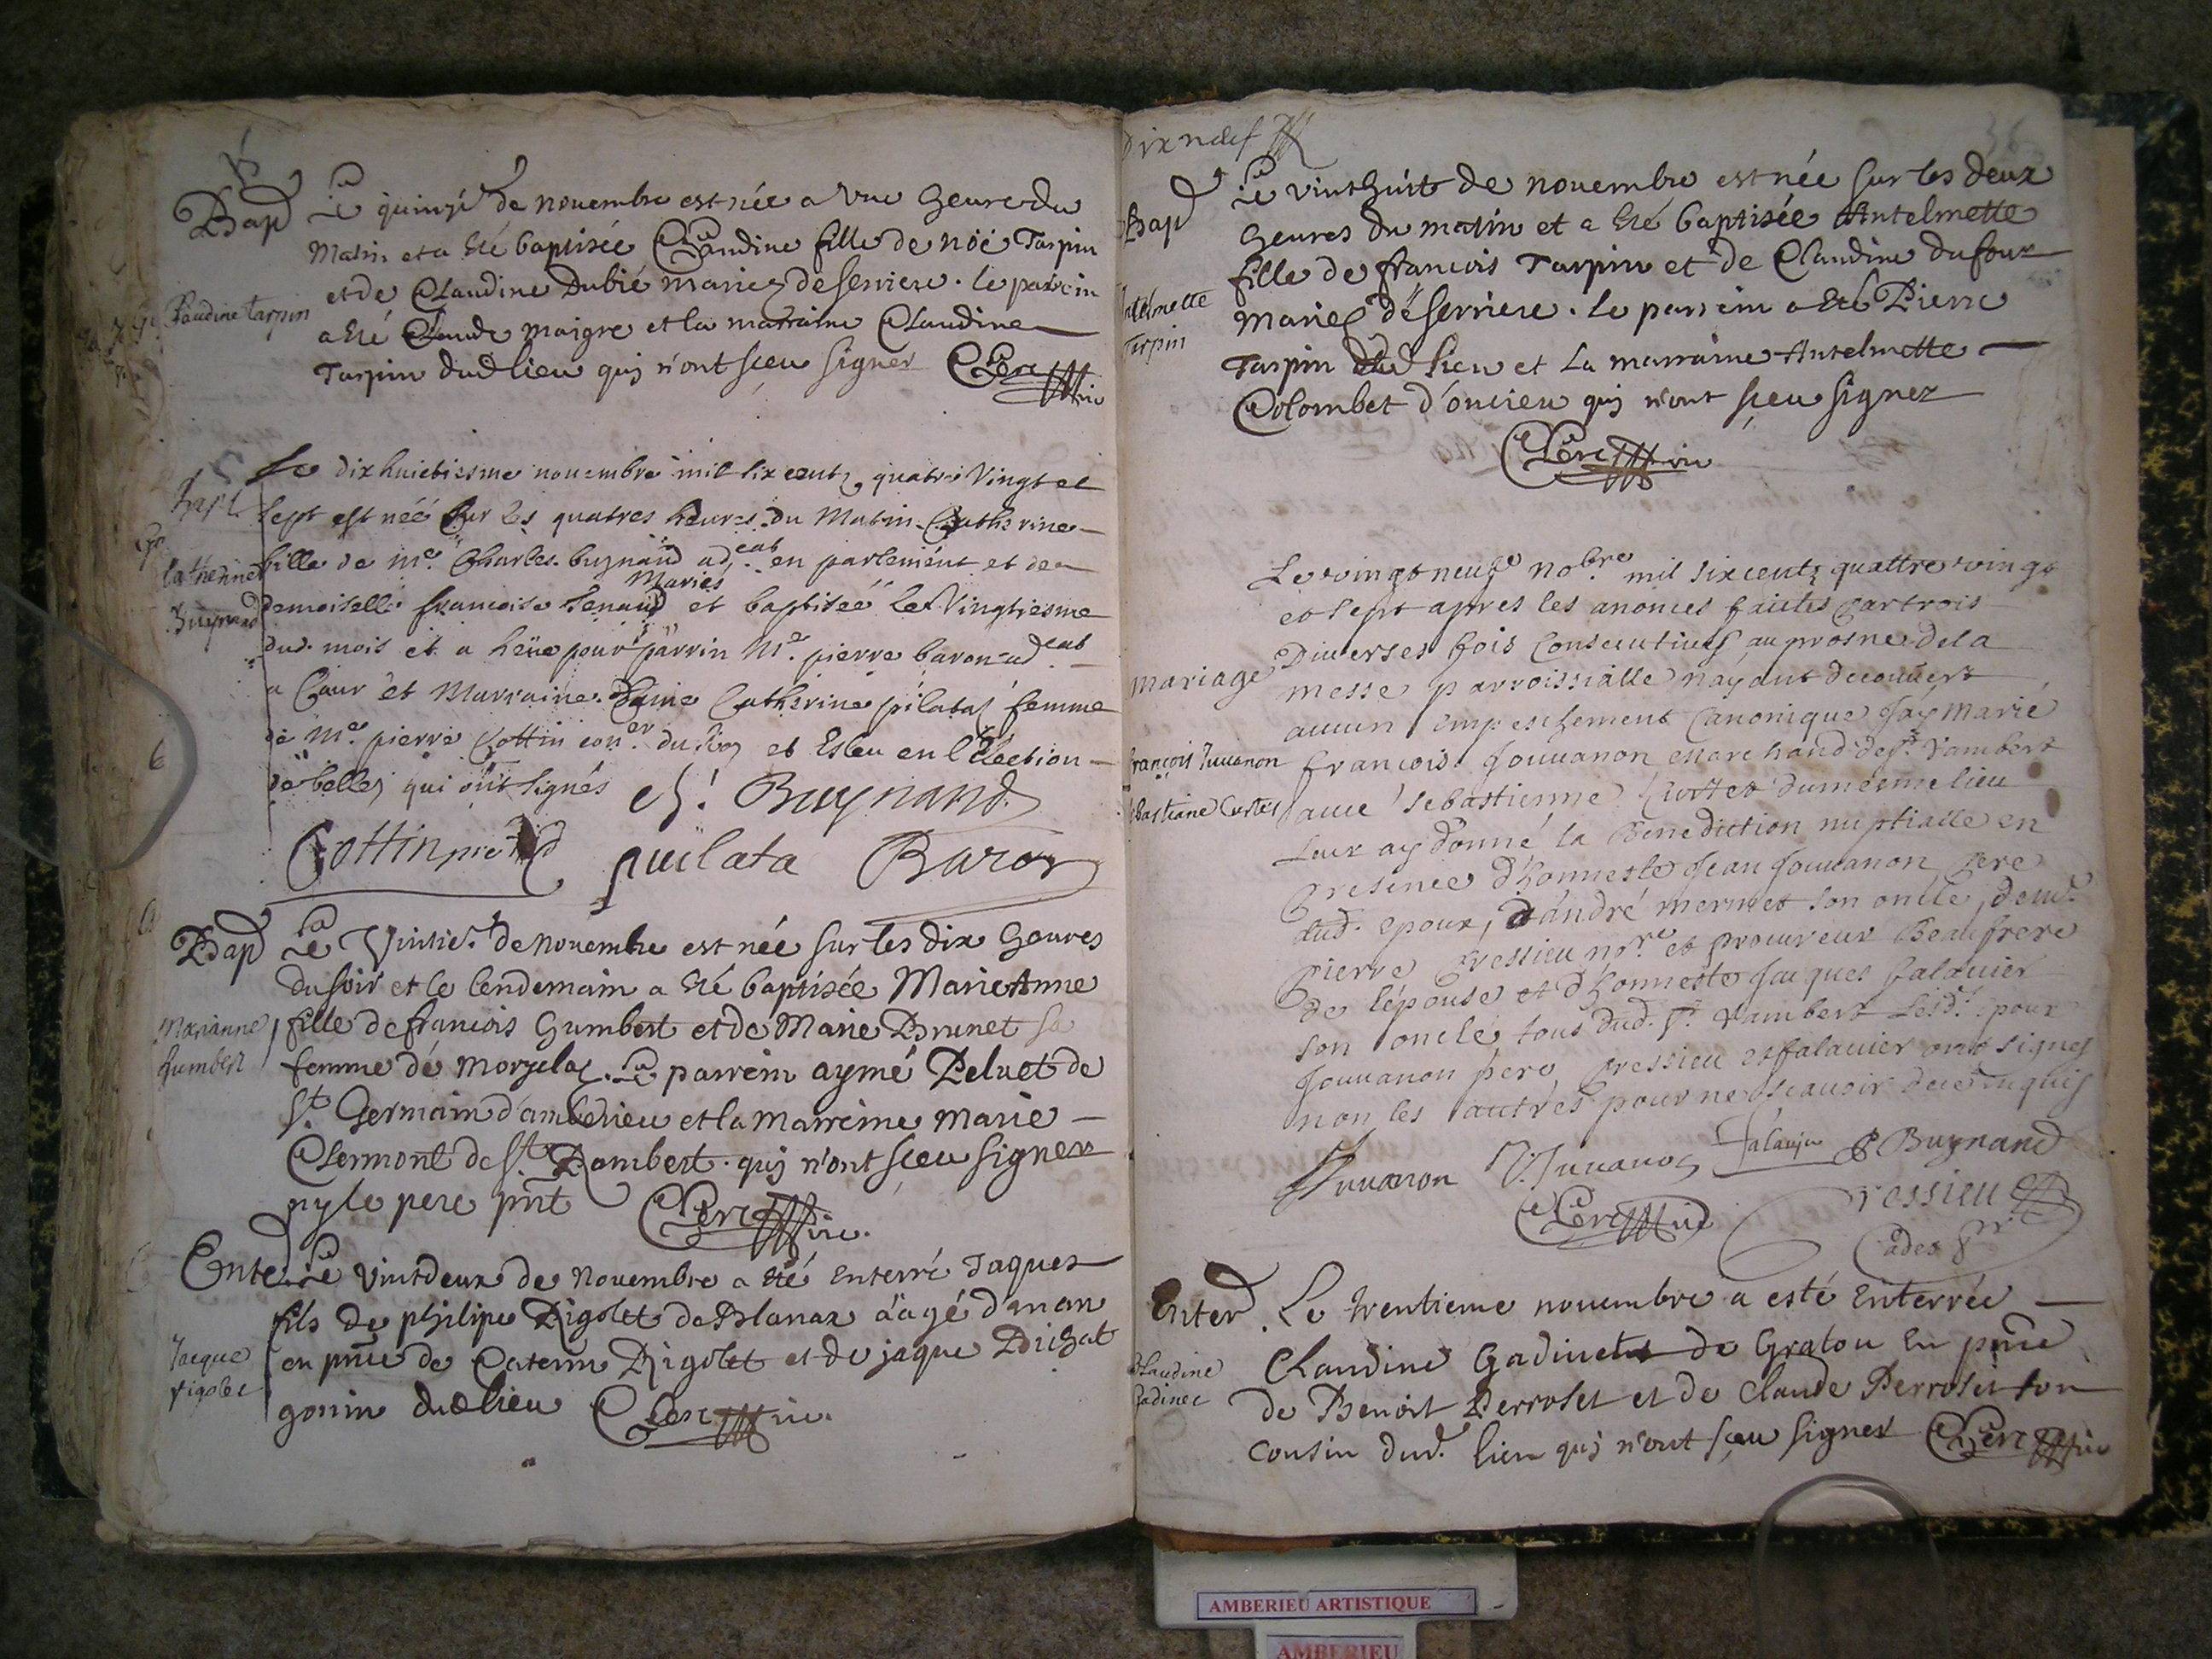 Bap
Claudine tarpin
Le quinzé de nouembre est née a vne heure du
Matin et a eté baptisée Claudine fille de noé Tarpin
et de Claudine Dubié mariez de serriere. le parrein
a eté Claude maigre et la marraine Claudine
Tarpin dud lieu quj n'ont sceu signer Clerc vic
bapt
Catherine
Buynand
Le dixhuictiesme nouembre mil six centz quatre Vingt et
sept est néé sur les quatres heures du Matin Catherine
fille de Mre. Charles buynand adcat en parlement et de
Mariés
demoiselle francoise et baptiséé le Vingtiesme
dud. mois et a heue pour parrin Mre. pierre baron adcat
a Cour et Marraine. Dame Catherine pilatas femme
de Mre. pierre Cottin coner. du Roy et Esleu en l'Election
de belley qui ont signés ch. Buynand
Cottin puilata Baron
Bap
Marianne
humbert
Le Vintie. de nouembre est née sur les dix heures
du soir et le lendemain a eté baptisée Marie Anne
fille de francois humbert et de Marie Brunet sa
femme de Morgelas. Le parrein aymé Peluet de
St. Germain d'amberieu et la marreine Marie
Clermont de St. Rambert. quj n'ont sceu signer
ny le pere pnt Clerc vic.
Enter
Jacque
rigolet
Le vintdeux de nouembre a eté enterré Jaques
fils de philipe Rigolet de Blanaz aagé d'un an
en pnce de Caterin Rigolet et de jaque Bichat
gonin dud lieu Clerc vic.
Dix neuf
36
Bap
Antelmette
Tarpin
Le vinthuit de nouembre est née sur les deux
heures du matin et a eté baptisée Antelmette
fille de francois Tarpin et de Claudine dufour
Mariez de serriere. le parrein a eté Pierre
Tarpin dud lieu et la marraine Antelmette
Colombet d'oncieu quj n'ont sceu signer
Clerc vic
mariage
françois Juuanon
sebastiane Curtet
Le vingt neufe nobre mil six centz quattre vingt
et sept apres les anonces faictes par trois
Diuerses fois Consecutiues au prosne de la
messe parroissialle nayant decouuert
aucun empeschement Canonique Jay marié
francois Jouuanon marchand de st. Rambert
auec sebastienne Curtet du mesme lieu
Leur ay donné la Benediction nuptialle en
presence d'honneste Jean Jouuanon pere
dud. epoux, d'andré mermet son oncle, de mr.
pierre pressieu nore et procureur Beaufrere
de lépouse et d'honneste Jacques falauier
son oncle tous dud. st. Rambert Lesd. pour
Jouuanon pere pressieu et falauier ont signes
non les autres pour ne scauoir de ce enquis
Juuanon J. Juuanon falauier Buynand
Clerc vic pressieu
Enter
Claudine
Gadinet
Le trentieme nouembre a esté Enterrée
Claudine Gadinet de Gratou en pnce
de Benoit Perroset et de Claude Perroset son
cousin dud. lieu quj n'ont sceu signer Clerc vic
AMBERIEU ARTISTIQUE
AMBERIEU